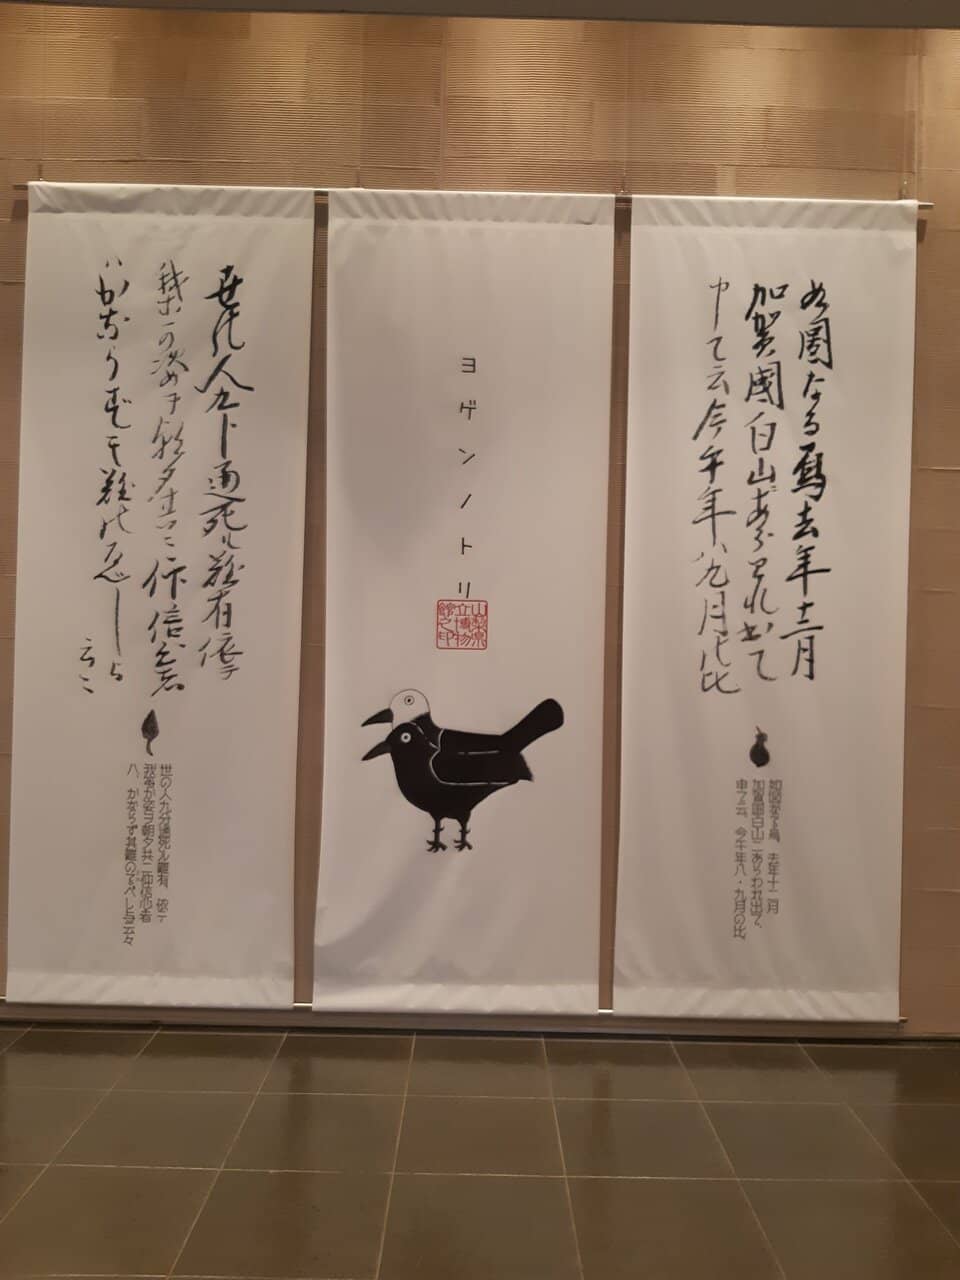 如圖なる烏去年十二月
加賀國白山ニあらわれ出て
申て云今午年八九月の比
如図なる烏、去年十二月
加賀国白山ニあらわれ出て、
申て云、今午年八・九月の比、
ヨゲンノトリ
山梨県
立博物
館之印
世の人九分通死ル難有依テ
我等か姿ヲ朝夕共ニ仰信心者
ハかならず其難のがるべしと云々
世の人九分通死ル難有、依テ
我等か姿ヲ朝夕共ニ仰信心者
ハ、かならず其難のがるべしと云々